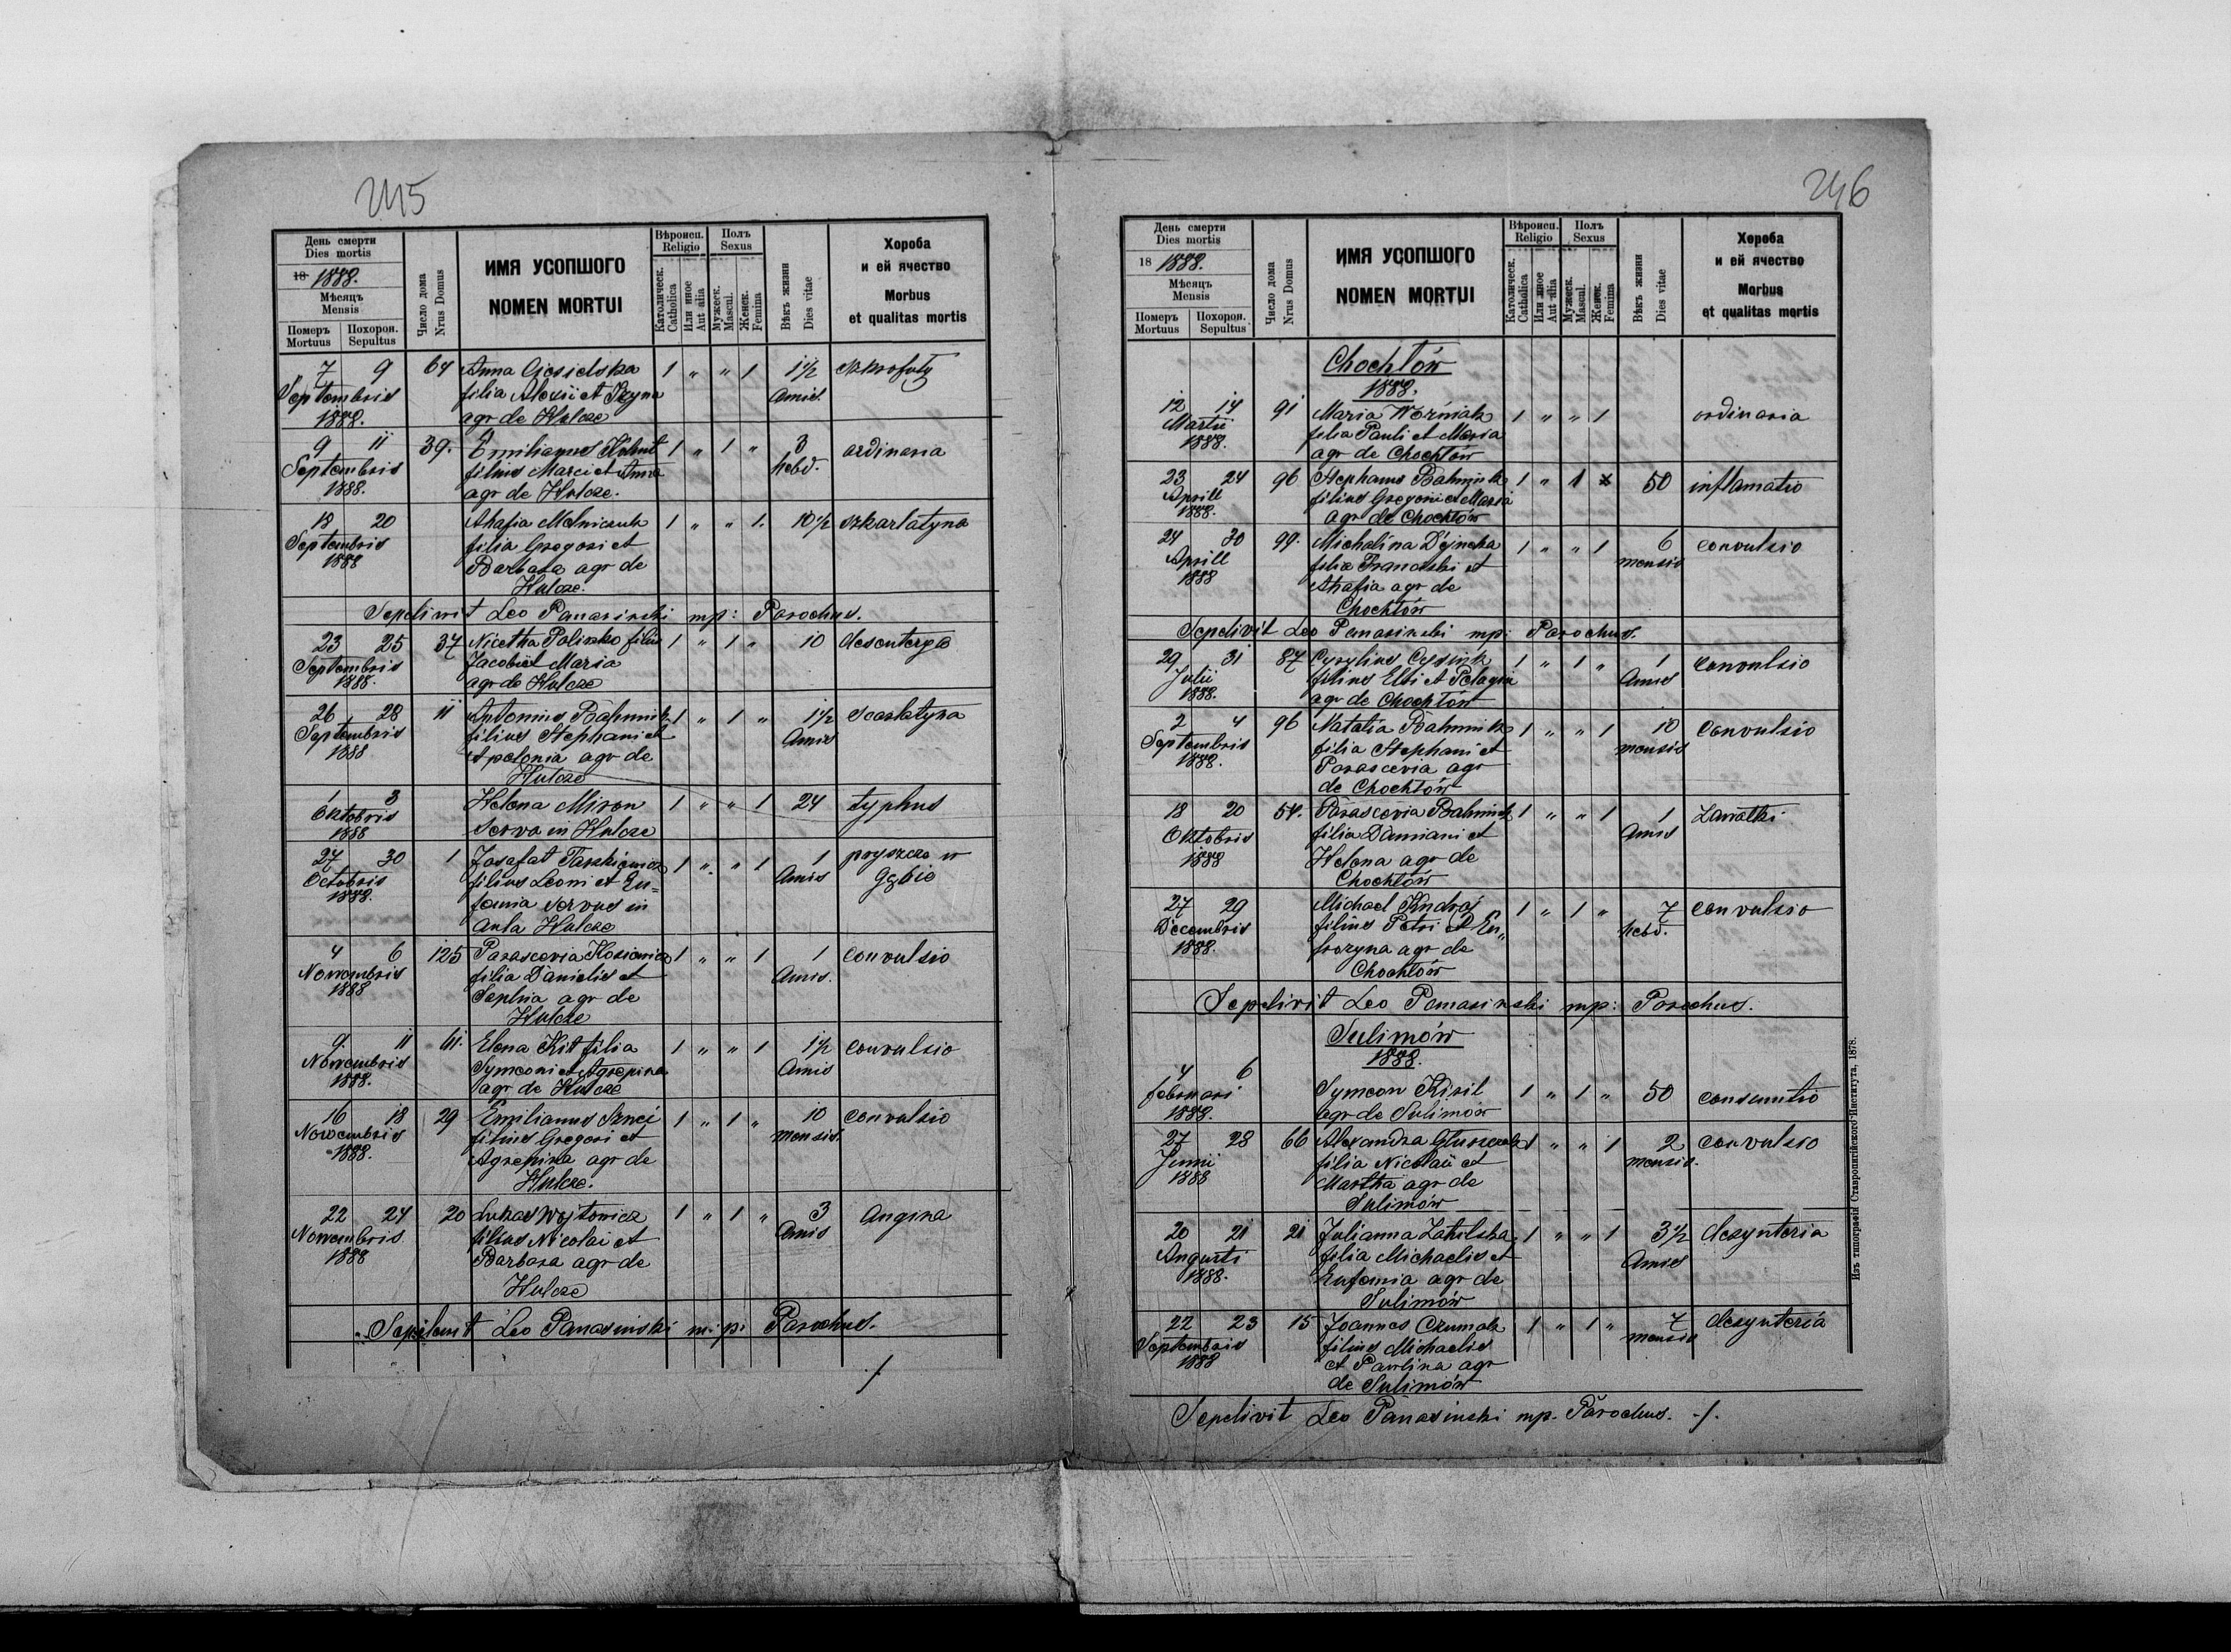 245
День смерти
Dies mortis
18 1888.
Мѣсяцъ
Mensis
Померъ Похорон.
Mortuus Sepultus
Число дома
Nrus Domus
ИМЯ УСОПШОГО
NOMEN MORTUI
Вѣроисп.
Religio
Католическ.
Catholica
Или иное
Aut alia
Полъ
Sexus
Мужеск.
Mascul.
Женск.
Femina
Вѣкъ жизни
Dies vitae
Хороба
и ей ячество
Morbus
et qualitas mortis
7 9 64 Anna 1 " " 1 1½
Septembris filia Alexii et Iryna Annis
1888. agr de Hulcze
9 11 39. Emilianus 1 " 1 " 3 ordinaria
Septembris filius Marci et Anna hebd.
1888. agr de Hulcze.
18 20 Ahafia Melniczuk 1 " " 1. 10½ szkarlatyna
Septembris filia Gregori et
1888 Barbara agr de
Hulcze.
Sepelivit Leo Panasinski mp: Parochus.
23 25 37 Nicetha Polinko filius 1 " 1 " 10
Septembris Jacobi et Maria
1888. agr de Hulcze
26 28 11 Antonius Bahmiuk 1 " 1 " 1½ scarlatyna
Septembris filius Stephani et Annis
1888 Apolonia agr de
Hulcze
1 3 Helena Miron 1 " " 1 24 typhus
Oktobris Serva in Hulcze
1888
27 30 1 Josafat 1 " " 1 1 pryszcze w
Octobris filius Leoni et Eu= Annis gębie
1888. femia servus in
aula Hulcze
4 6 125 Parascevia 1 " " 1 1 convulsio
Novembris filia Danielis et Annis.
1888 Sophia agr de
Hulcze
9. 11 Elena Kit filia 1 " " 1 1½ convulsio
Novembris Symeoni et Agrepina Annis
1888. agr de Hulcze
16 18 29 Emilianus 1 " 1 " 10 convulsio
Novembris filius Gregori et mensis.
1888. Agrepina agr de
Hulcze.
22 24 20 Lukas Wojtowicz 1 " 1 " 3 Angina
Novembris filius Nicolai et Annis
1888 Barbara agr de
Hulcze
Sepelivit Leo Panasinski m. p. Parochus.
246
День смерти
Dies mortis
18 1888.
Мѣсяцъ
Mensis
Померъ Похорон.
Mortuus Sepultus
Число дома
Nrus Domus
ИМЯ УСОПШОГО
NOMEN MORTUI
Вѣроисп.
Religio
Католическ.
Catholica
Или иное
Aut alia
Полъ
Sexus
Мужеск.
Mascul.
Женск.
Femina
Вѣкъ жизни
Dies vitae
Хороба
и ей ячество
Morbus
et qualitas mortis
Chochłów
1888.
12 14 91 Maria Woźniak 1 " " 1 ordinaria
Martii filia Pauli et Maria
1888. agr de Chochłów
23 24 96 Stephanus Bahmiuk 1 " 1 50 inflamatio
Aprill filius Gregorii et Maria
1888. agr de Chochłów
24 30 99. Michalina Dejneka 1 " " 1 6 convulsio
Aprill filia et mensis
1888 Ahafia agr de
Chochłów
Sepelivit Leo Panasinski mp: Parochus.
29 31 87 Cyrylius 1 " 1 " 1 convulsio
Julii filius et Pelagia Annis
1888. agr de Chochłów
2 4 96 Natalia Bahmiuk 1 " " 1 10 convulsio
Septembris filia Stephani et mensis
1888. Parascevia agr
de Chochłów
18 20 54. Parascevia Bahmiuk 1 " " 1 1
Oktobris filia Damiani et Annis
1888 Helena agr de
Chochłów
27 29 Michael Andrej 1 " 1 " 7 convulsio
Decembris filius Petri et Eu" hebd.
1888. frozyna agr de
Chochłów
Sepelivit Leo Panasinski mp: Parochus.
Sulimów
1888.
4 6 Symeon Kiril 1 " 1 " 50 consumtio
februari agr de Sulimów
1888.
27 28 66 Alexandra 1 " " 1 2 convulsio
Junii filia Nicolaii et mensis.
1888 Martha agr de
Sulimów
20 21 21 Julianna Zatilska 1 " " 1 3½ dezynteria
Angusti filia Michaelis et Annis
1888. Eufemia agr de
Sulimów
22 23 15 Joannes Czumak 1 " 1 " 7 dezynteria
Septembris filius Michaelis mensis
1888 et Pawlina agr
de Sulimów
Sepelivit Leo Panasinski mp. Parochus. ./.
Изъ типографіи Ставропигійского Института, 1878.